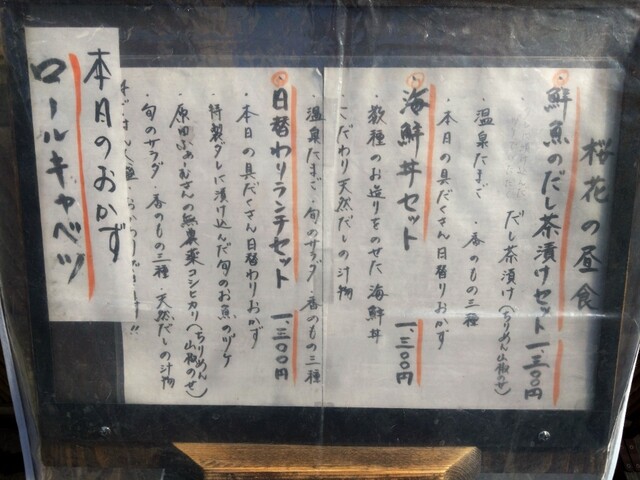 桜花の昼食
鮮魚のだし茶漬けセット 一、三〇〇円
だし茶漬け(ちりめん山椒のせ)
・温泉たまご ・香のもの三種
・本日の具だくさん日替りおかず
海鮮丼セット 一、三〇〇円
・数種のお造りをのせた海鮮丼
・こだわり天然だしの汁物
・温泉たまご・旬のサラダ・香のもの三種
日替わりランチセット 一、三〇〇円
・本日の具だくさん日替わりおかず
・特製ダレに漬け込んだ旬のお魚のヅケ
・原田ふぁーむさんの無農薬コシヒカリ(ちりめん山椒のせ)
・旬のサラダ・香のもの三種・天然だしの汁物
本日のおかず
ロールキャベツ